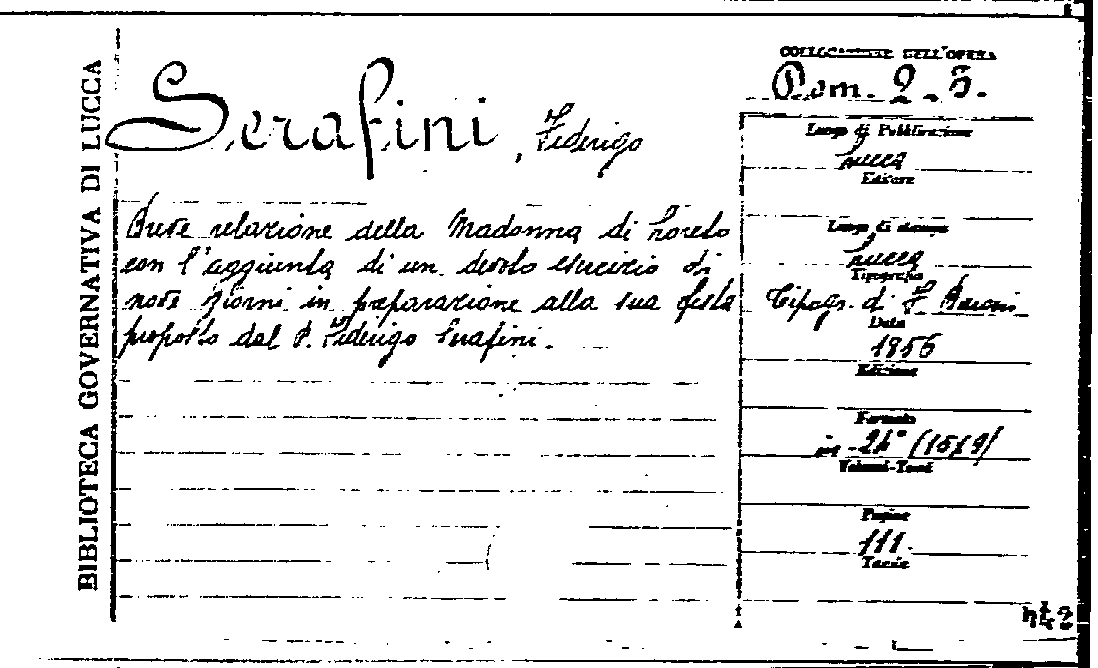 BIBLIOTECA GOVERNATIVA DI LUCCA
Serafini, Federigo
Breve relazione della Madonna di Loreto
con l'aggiunta di un devoto esercizio di
nove giorni in preparazione alla sua festa
proposto dal P. Federigo Serafini.
COLLOCAZIONE DELL'OPERA
Rom. 2. 3.
Luogo di Pubblicazione
Lucca
Editore
Luogo di stampa
Lucca
Tipografia
Tipogr. di F. Baroni
Data
1856
Edizione
Formato
in-24°
Volumi-Tomi
Pagine
111.
Tavole